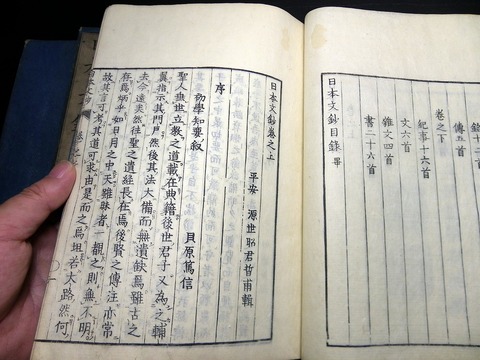 傳五首
卷之下
紀事十六首
文六首
雜文四首
書二十六首
日本文鈔目錄畢
日本文鈔卷之上
平安 源世昭君哲甫輯
序
初學知要叙
貝原篤信
聖人垂世立敎之道載在典籍後世君子又爲之輔
翼指示其門戶然後其法大備而無遺缺焉雖古之
去今遠矣然往聖之遺經長在焉後賢之傳注亦常
存焉炳乎如日月之中天雖昧者一觀之則無不明
故其言可考其道可求由是而之焉坦若大路然何